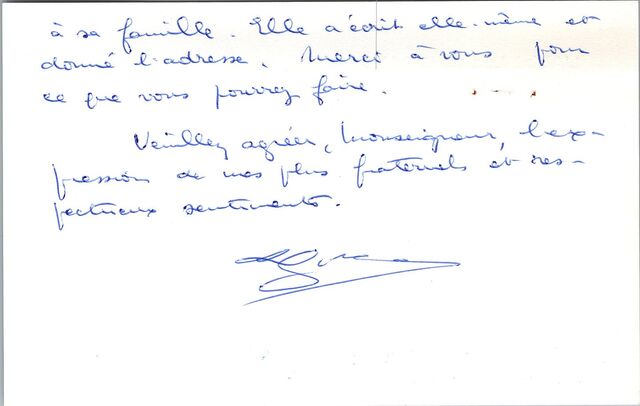 à sa famille. Elle a écrit elle-même et
donné l'adresse. Merci à vous pour
ce que vous pourrez faire.
Veuillez agréer, Monseigneur, l'ex-
pression de mes plus fraternels et res-
pectueux sentiments.